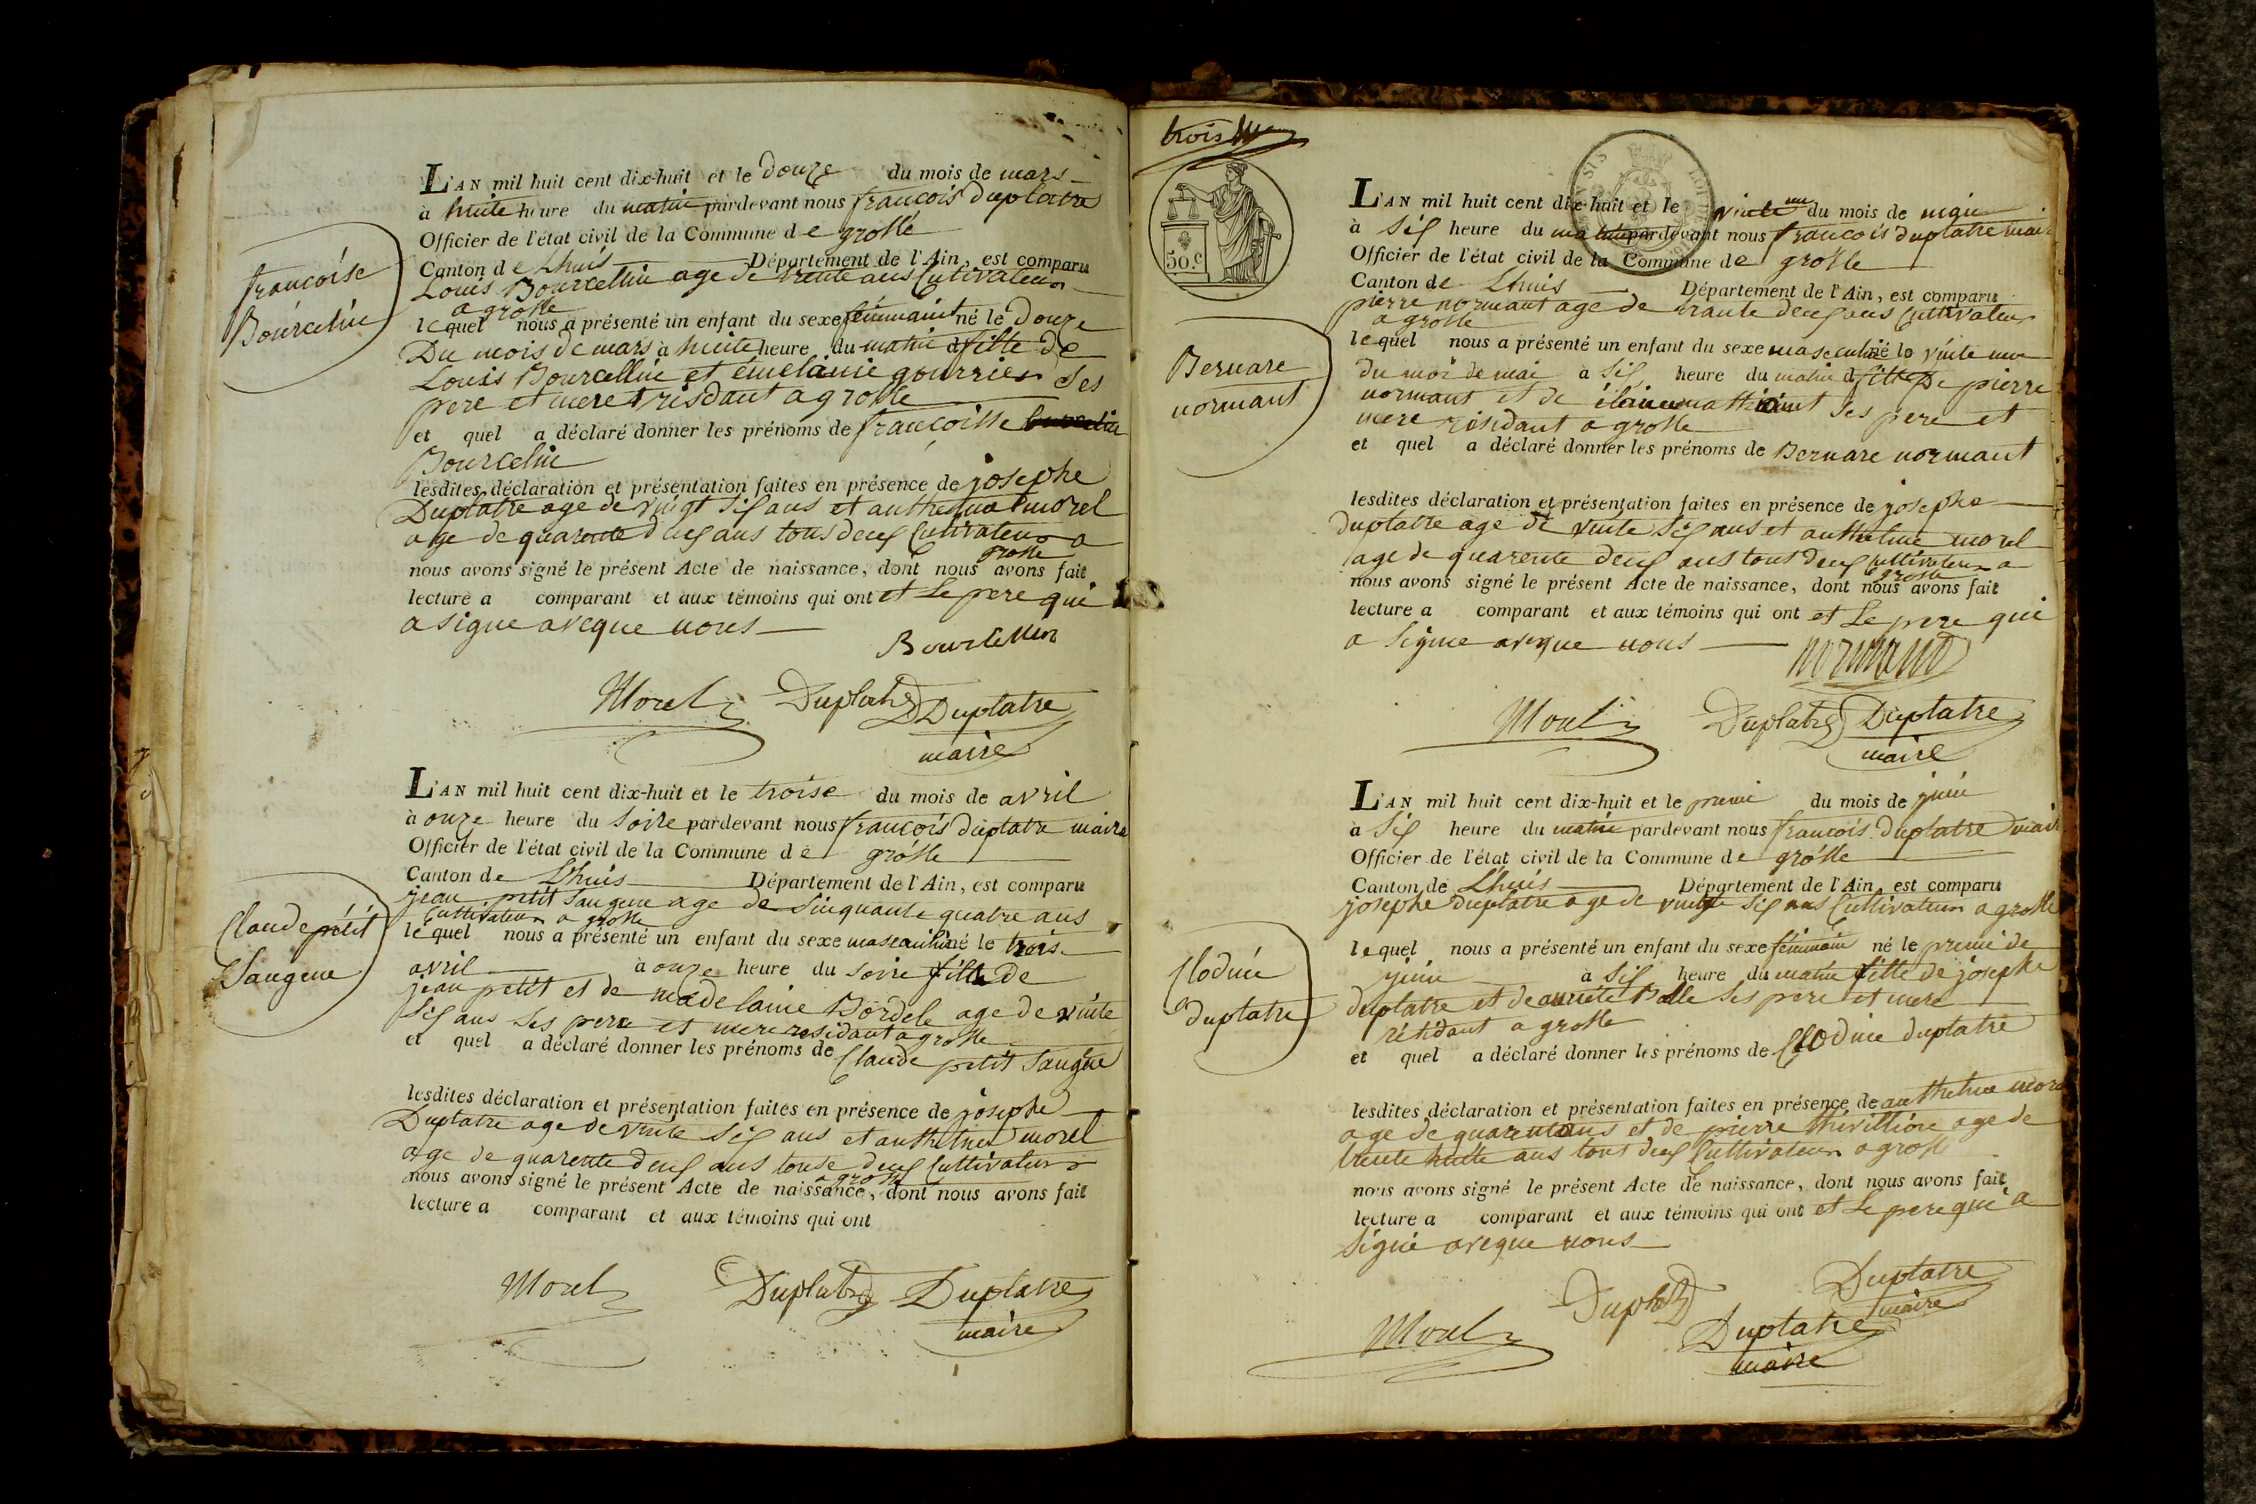 L'AN mil huit cent dix-huit et le douze du mois de mars
à huite heure du matin pardevant nous francois Duplatre
Officier de l'état civil de la Commune de grolle
Canton de Lhuis Département de l'Ain, est comparu
Louis Bourcellin age de trente ans Cultivateur
a grolle
lequel nous a présenté un enfant du sexe féminaint né le Douze
Du mois de mars à huite heure du matin d fille de
Louis Bourcellin et émélainie gourrier Ses
pere et mere risdant a grolle
et quel a déclaré donner les prénoms de françoisse
Bourcelin
lesdites déclaration et présentation faites en présence de josephe
Duplatre age de vingt sis ans et anthelme morel
age de quarente deus ans tous deus Cultivateur a
grolle
nous avons signé le présent Acte de naissance, dont nous avons fait
lecture a comparant et aux témoins qui ont et Le pere qui
a signe aveque nous
Bourcellin
Morel Duplatre Duplatre
maire
françoise
Bourcelin
L'AN mil huit cent dix-huit et le troise du mois de avril
à onze heure du soire pardevant nous francois duplatre maire
Officier de l'état civil de la Commune de grolle
Canton de Lhuis Département de l'Ain, est comparu
jean petit Sangene age de Sinquante quatre ans
Cultivateur a grolle
lequel nous a présenté un enfant du sexe mascculin né le trois
avril à onze heure du soire fille de
jean petit et de madelaine Bordele age de vinte
sis ans Ses pere et mere residant a grolle
et quel a déclaré donner les prénoms de Claude petit Sangne
lesdites déclaration et présentation faites en présence de josephe
Duplatre age de vinte sis ans et anthelme morel
age de quarente deus ans touse deus Cultivateur
a grolle
nous avons signé le présent Acte de naissance, dont nous avons fait
lecture a comparant et aux témoins qui ont
Morel Duplatre Duplatre
maire
Claude pétit
Sangene
trois
50.c
L'AN mil huit cent dix-huit et le vinte un du mois de mai
à sis heure du matin pardevant nous francois duplatre maire
Officier de l'état civil de la Commune de grolle
Canton de Lhuis Département de l'Ain, est comparu
pierre normant age de trante deus ans Cultivateur
a grolle
lequel nous a présenté un enfant du sexe masculin né le vinte un
du moi de mai à sis heure du matin d fille De pierre
normant et de Ses pere et
mere risidant a grolle
et quel a déclaré donner les prénoms de Bernare normant
lesdites déclaration et présentation faites en présence de josephe
duplatre age de vinte sis ans et anthelme morel
age de quarente deus ans tous deus Cultivateur a
grolle
nous avons signé le présent Acte de naissance, dont nous avons fait
lecture a comparant et aux témoins qui ont et Le pere qui
a Signe aveque nous
normand
Morel Duplatre Duplatre
maire
Bernare
normant
L'AN mil huit cent dix-huit et le premie du mois de juin
à sis heure du matin pardevant nous francois duplatre maire
Officier de l'état civil de la Commune de grolle
Canton de Lhuis Département de l'Ain, est comparu
josephe Duplatre age de vingte sis ans Cultivateur a grolle
lequel nous a présenté un enfant du sexe féminain né le premie de
juin à sis heure du matin fille de josephe
duplatre et de Ses pere et mere
résidant a grolle
et quel a déclaré donner les prénoms de Clodine duplatre
lesdites déclaration et présentation faites en présence de anthelme morel
age de quarente ans et de pierre age de
trente huite ans tous deus Cultivateur a grolle
nous avons signé le présent Acte de naissance, dont nous avons fait
lecture a comparant et aux témoins qui ont et Le pere qui a
Signé aveque nous
Duplatre
maire
Morel Duplatre Duplatre
maire
Clodine
Duplatre